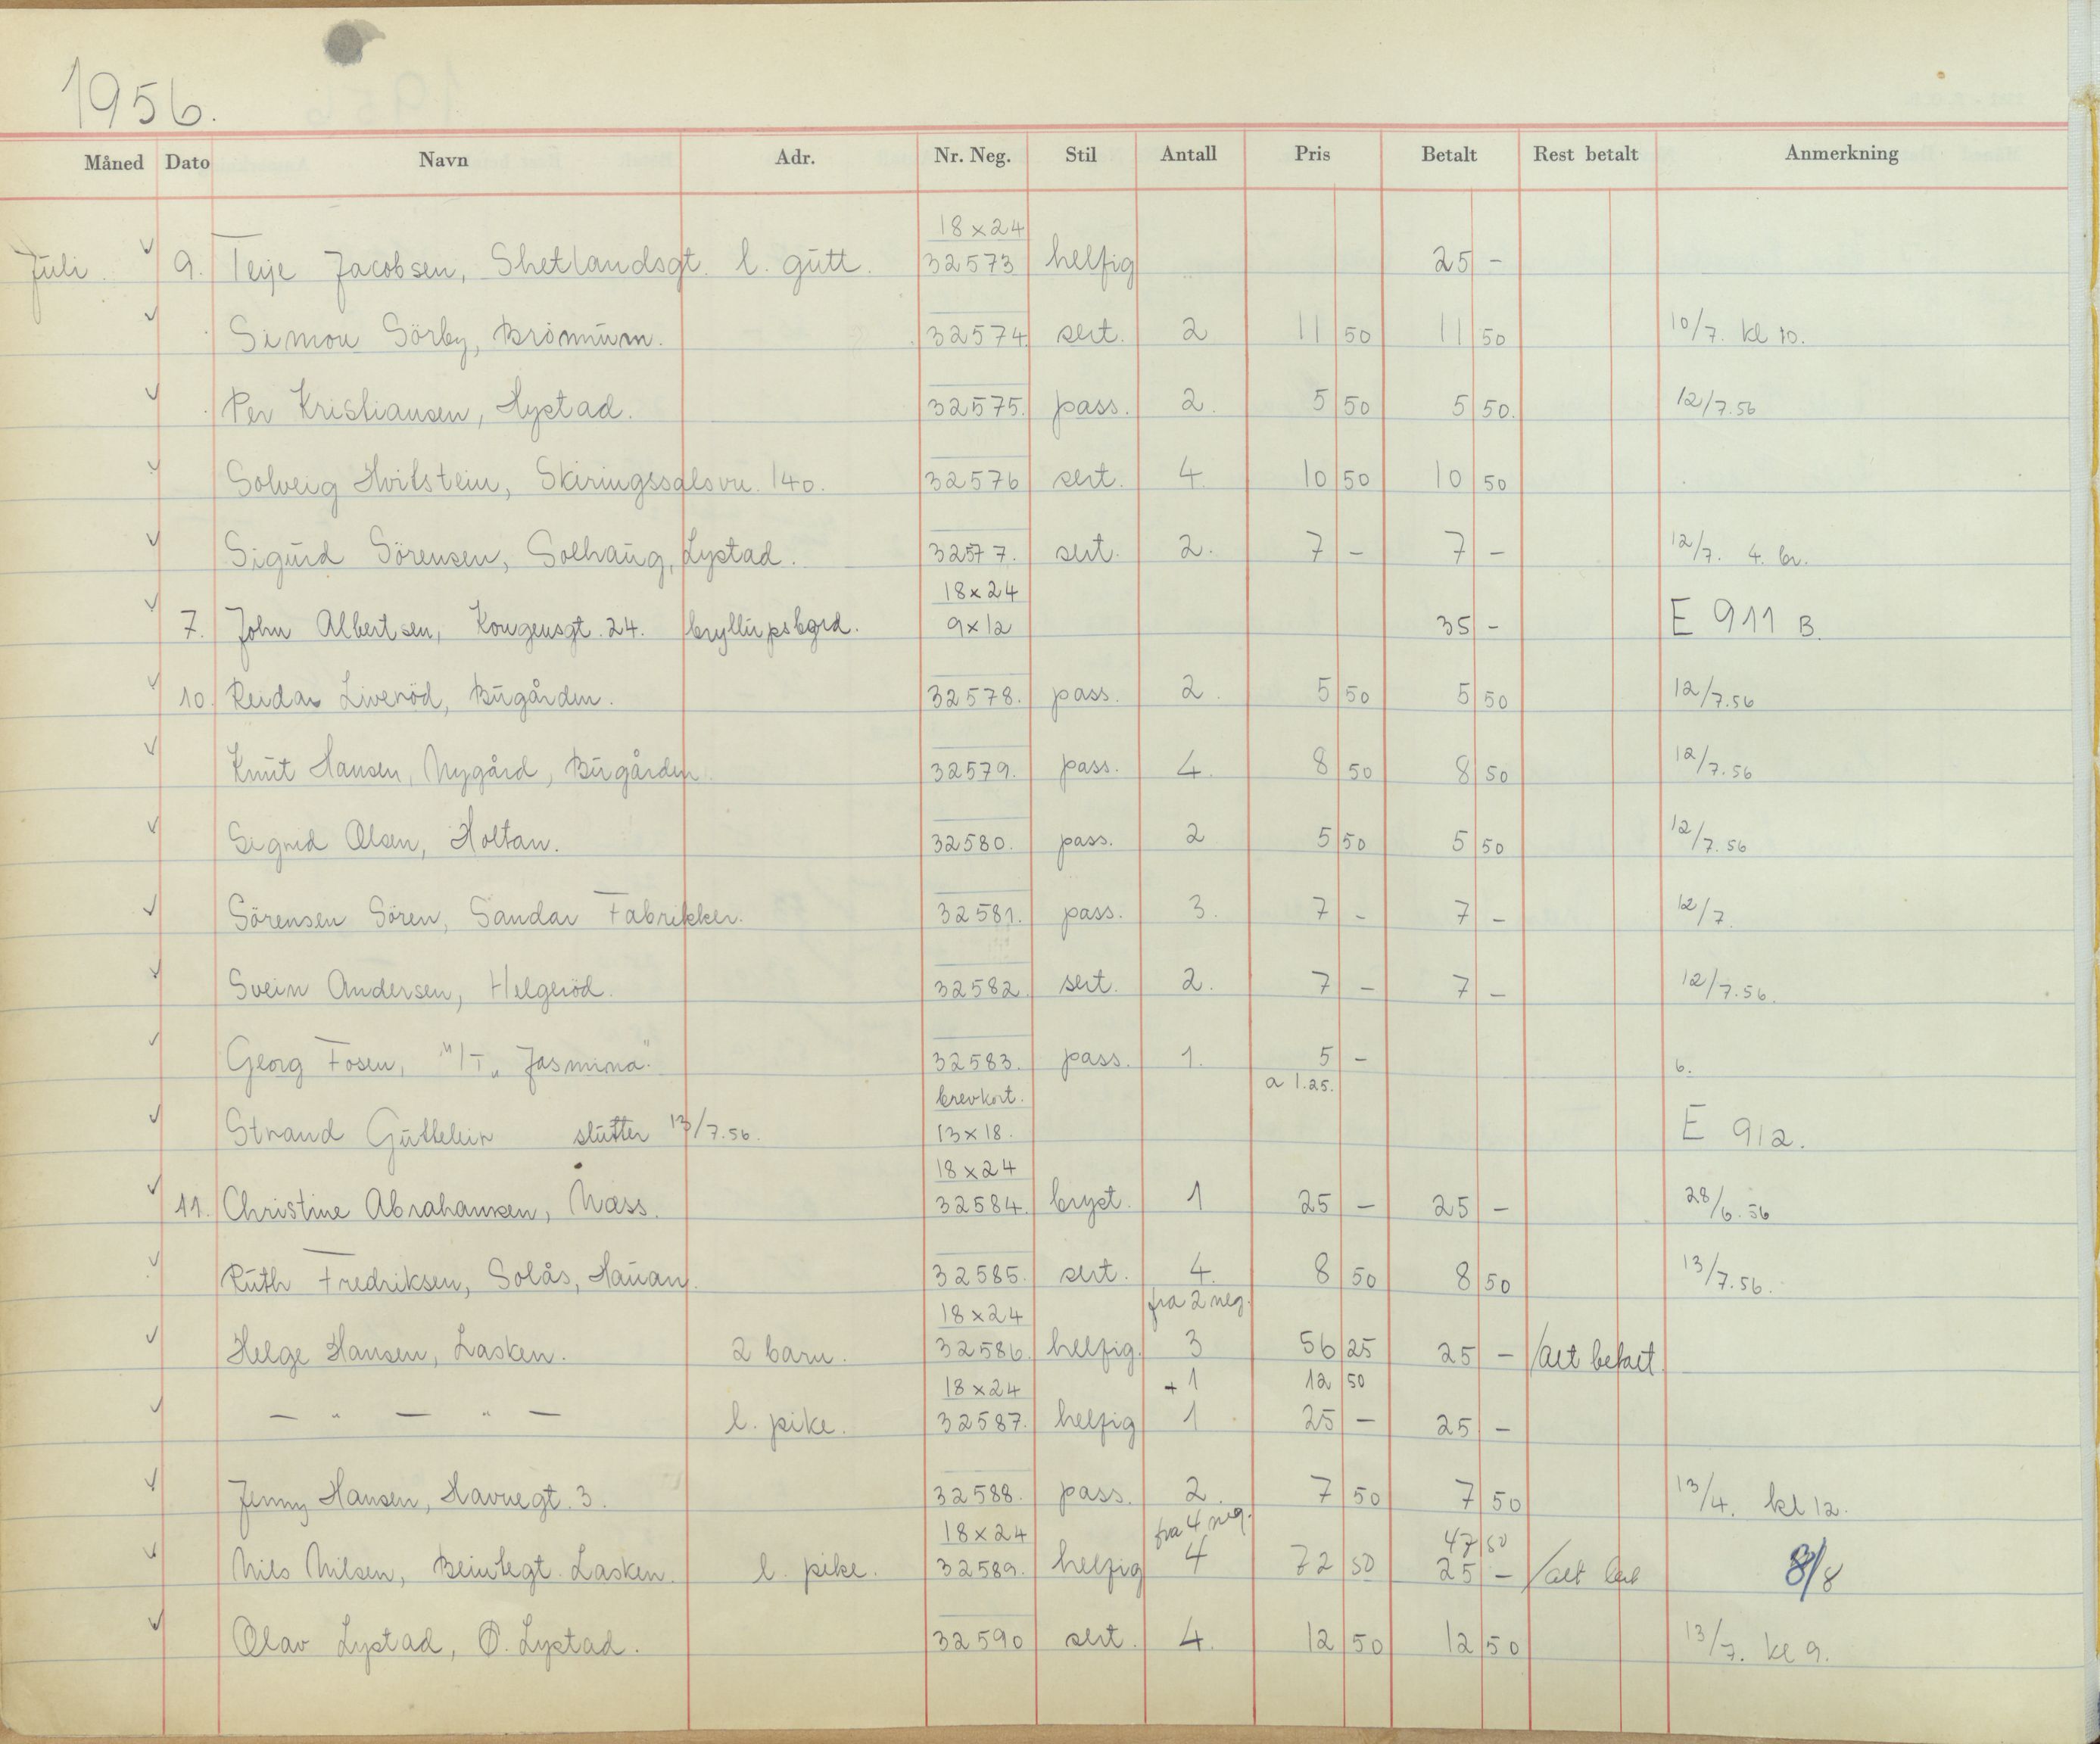 1956.
Måned Dato Navn Adr. Nr. Neg. Stil Antall Pris Betalt Rest betalt Anmerkning
18x24
Juli. 9. Terje Jacobsen, Shetlandsgt. l. gutt. 32573 helfig 25 -
Simon Sörby, Brönnum. 32574. sert. 2 11 50 11 50 10/7. kl 10.
Per Kristiansen, Lystad. 32575. pass. 2. 5 50 5 50. 12/7.56
Solveig Hvitstein, Skiringssalsvn. 140. 32576 sert. 4. 10 50 10 50
Sigurd Sörensen, Solhaug, Lystad. 32577. sert. 2. 7 - 7 - 12/7. 4. br.
18x24
7. John Albertsen, Kongensgt. 24. bryllupsbord. 9x12 35 - E 911 B.
10. Reidar Liveröd, Bugården. 32578. pass. 2. 5 50 5 50 12/7.56
Knut Hansen, Nygård, Bugården. 32579. pass. 4. 8 50 8 50 12/7.56
Sigrid Olsen, Holtan. 32580. pass. 2 5 50 5 50 12/7.56
Sörensen Sören, Sandar Fabrikker. 32581. pass. 3. 7 - 7 - 12/7.
Svein Andersen, Helgeröd. 32582. sert. 2. 7 - 7 - 12/7.56.
Georg Fosen, M/T „Jasmina". 32583. pass. 1. 5 - 6.
brevkort. a 1.25.
Strand Guttehein slutter 13/7.56. 13x18. E 912.
18x24
11. Christine Abrahamsen, Næss. 32584. bryst. 1 25 - 25 - 28/6.56
Ruth Fredriksen, Solås, Hauan. 32585. sert. 4. 8 50 8 50 13/7.56.
18x24 fra 2 neg.
Helge Hansen, Lasken. 2 barn. 32586. helfig. 3 56 25 25 - /alt betalt.
18x24 +1 12 50
— " — " — l. pike. 32587. helfig 1 25 - 25 -
Jenny Hansen, Havnegt. 3. 32588. pass. 2. 7 50 7 50 13/4. kl 12.
18x24 fra 4 neg. 47 50
Nils Nilsen, Lasken. l. pike. 32589. helfig 4 72 50 25 - /alt bet 8/8
Olav Lystad, Ö. Lystad. 32590 sert. 4. 12 50 12 50 13/7. kl 9.